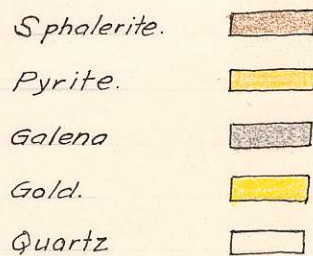 Sphalerite.
Pyrite.
Galena
Gold.
Quartz